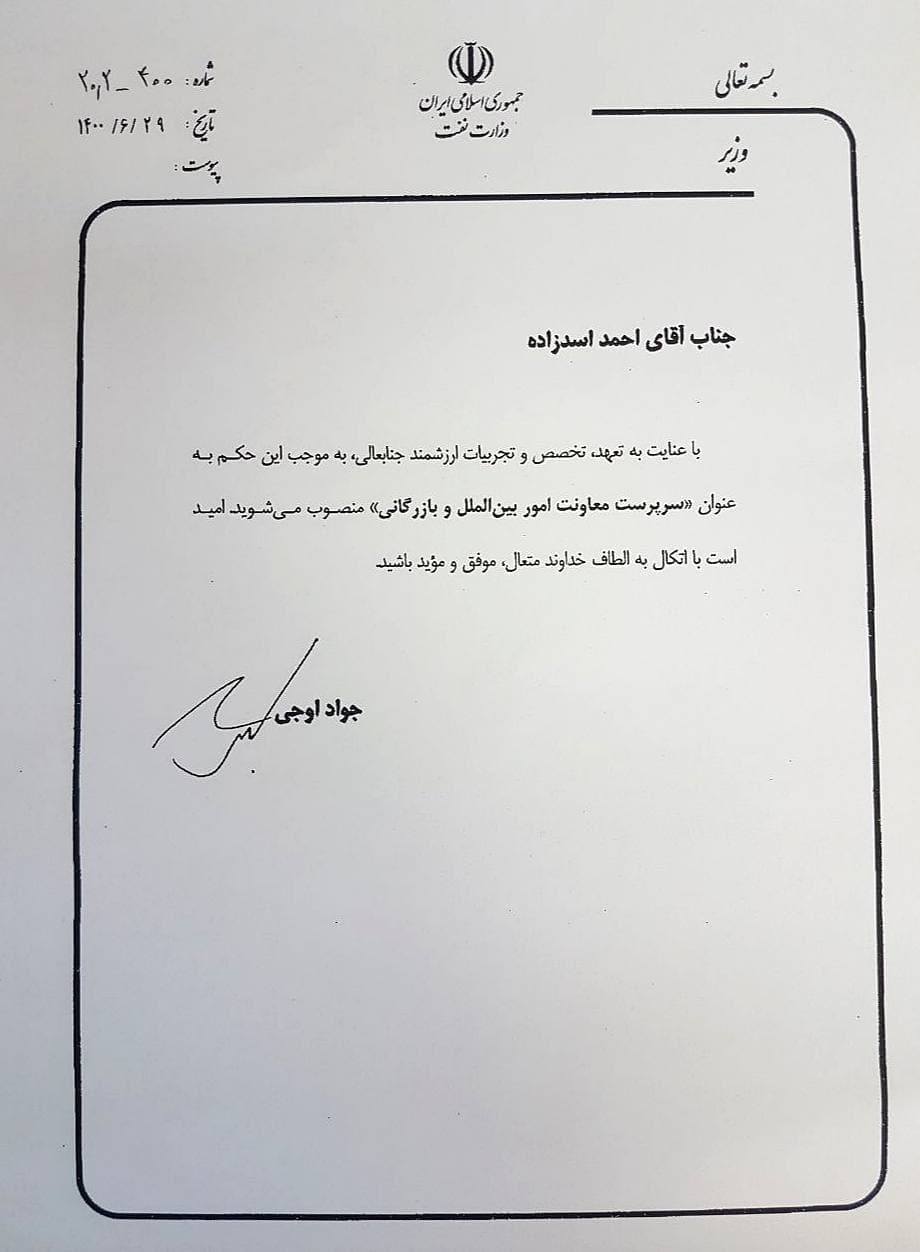 بسمه تعالی
جمهوری اسلامی ایران
وزارت نفت
وزیر
شماره: ۴۰۰ - ۲۰٫۲
تاریخ: ۱۴۰۰/۶/۲۹
پیوست:
جناب آقای احمد اسدزاده
با عنایت به تعهد، تخصص و تجربیات ارزشمند جنابعالی، به موجب این حکم به
عنوان «سرپرست معاونت امور بین‌الملل و بازرگانی» منصوب می‌شوید. امید
است با اتکال به الطاف خداوند متعال، موفق و مؤید باشید.
جواد اوجی